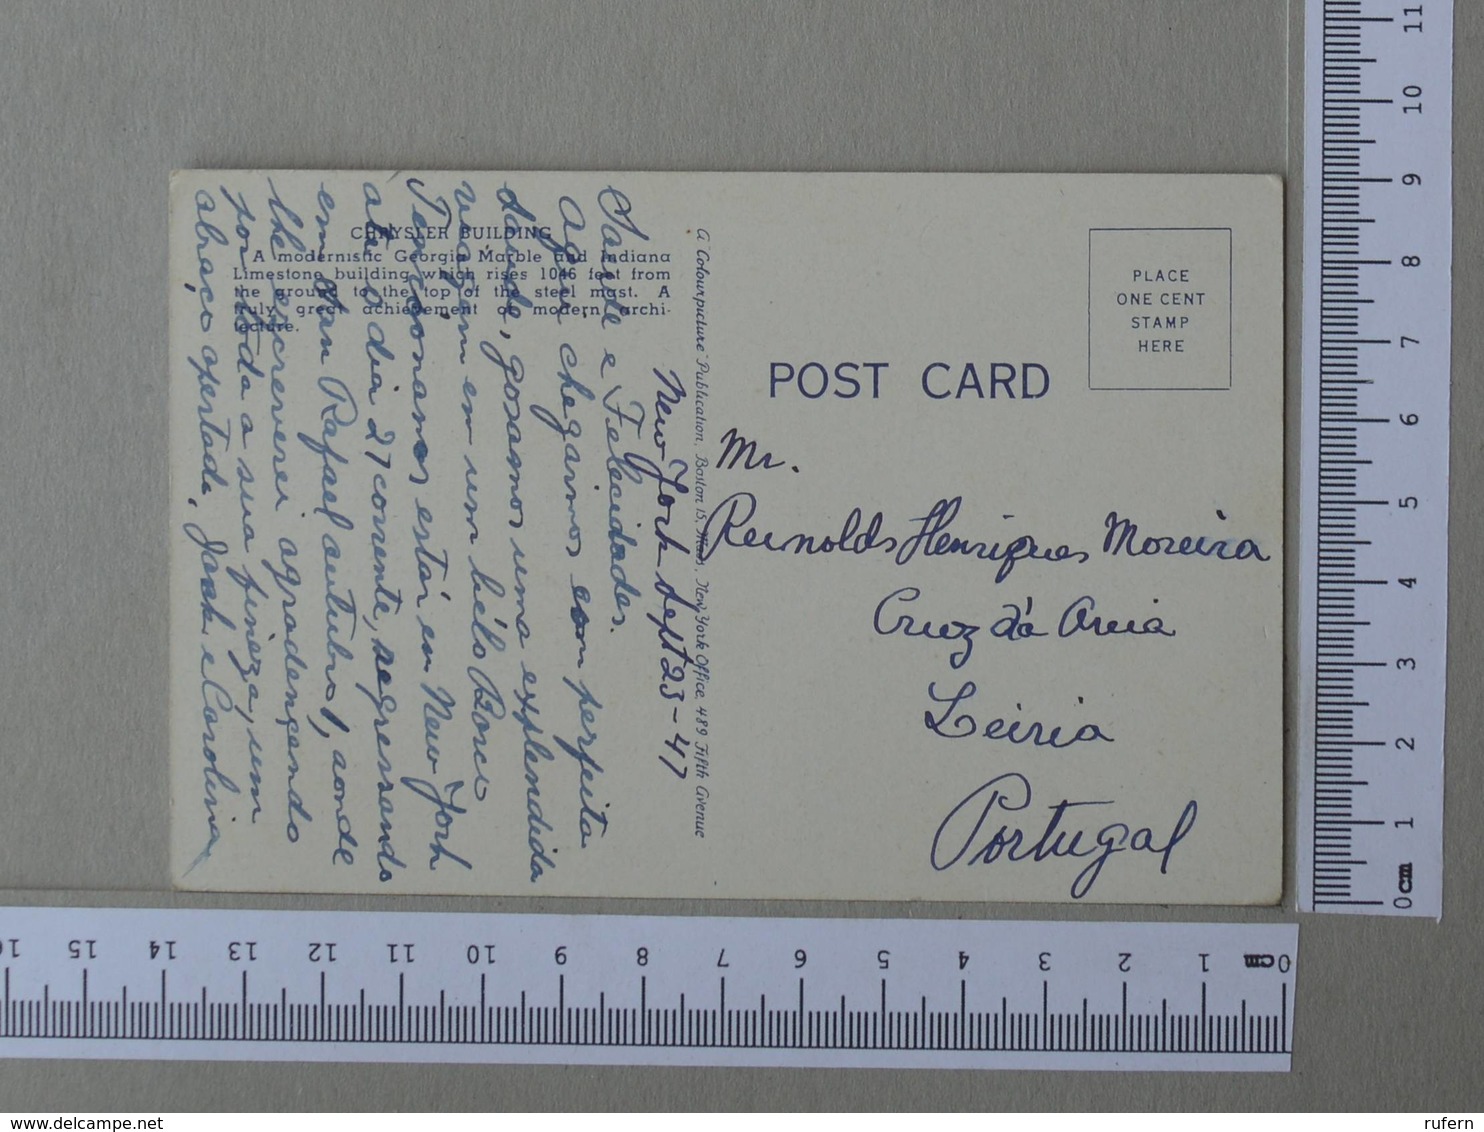 CHRYSLER BUILDING
A modernistic Georgia Marble and Indiana
Limestone building which rises 1046 feet from
the ground to the top of the steel mast. A
truly great achievement of modern archi-
tecture.
New York Sept 23-47
Saude e Felecidades.
Aqui chegamos com perfeita
saude, gosamos uma explendida
viagem em um bélo Barco
Tencionamos estár em New York
até o dia 27 corrente, regressando
em San Rafael outubro 1, aonde
lhe escreverei agradençendo
por toda a sua fineza, um
abraço apertado, Jack e Carolina
A "Colourpicture" Publication, Boston 15, Mass., New York Office, 489 Fifth Avenue
POST CARD
PLACE
ONE CENT
STAMP
HERE
Mr.
Reinolds Henriques Moreira
Cruz d'á Areia
Leiria
Portugal
11
10
9
8
7
6
5
4
3
2
1
0cm
16 15 14 13 12 11 10 9 8 7 6 5 4 3 2 1 0cm
rufern